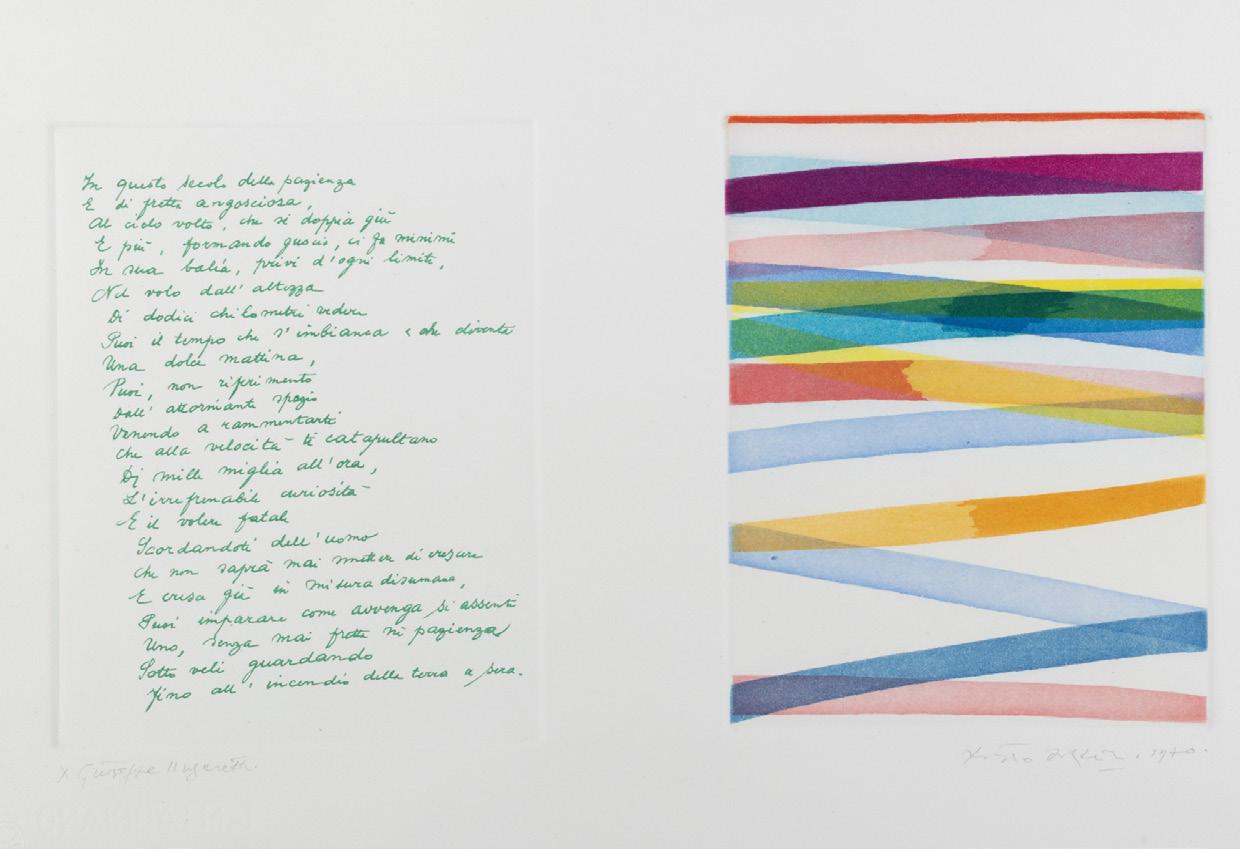 In questo secolo della pazienza
E di fretta angosciosa,
Al cielo volto, che si doppia giù
E più, formando guscio, ci fa minimi
In sua balìa, privi d'ogni limite,
Nel volo dall'altezza
Di dodici chilometri vedere
Puoi il tempo che s'imbianca e che diventa
Una dolce mattina,
Puoi, non riferimento
Dall'attorniante spazio
Venendo a rammentarti
Che alla velocità ti catapultano
Di mille miglia all'ora,
L'irrefrenabile curiosità
E il volere fatale
Scordandoti dell'uomo
Che non saprà mai smettere di crescere
E cresce già in misura disumana,
Puoi imparare come avvenga si assenti
Uno, senza mai fretta nè pazienza
Sotto veli guardando
Fino all'incendio della terra a sera.
Giuseppe Ungaretti
1970.